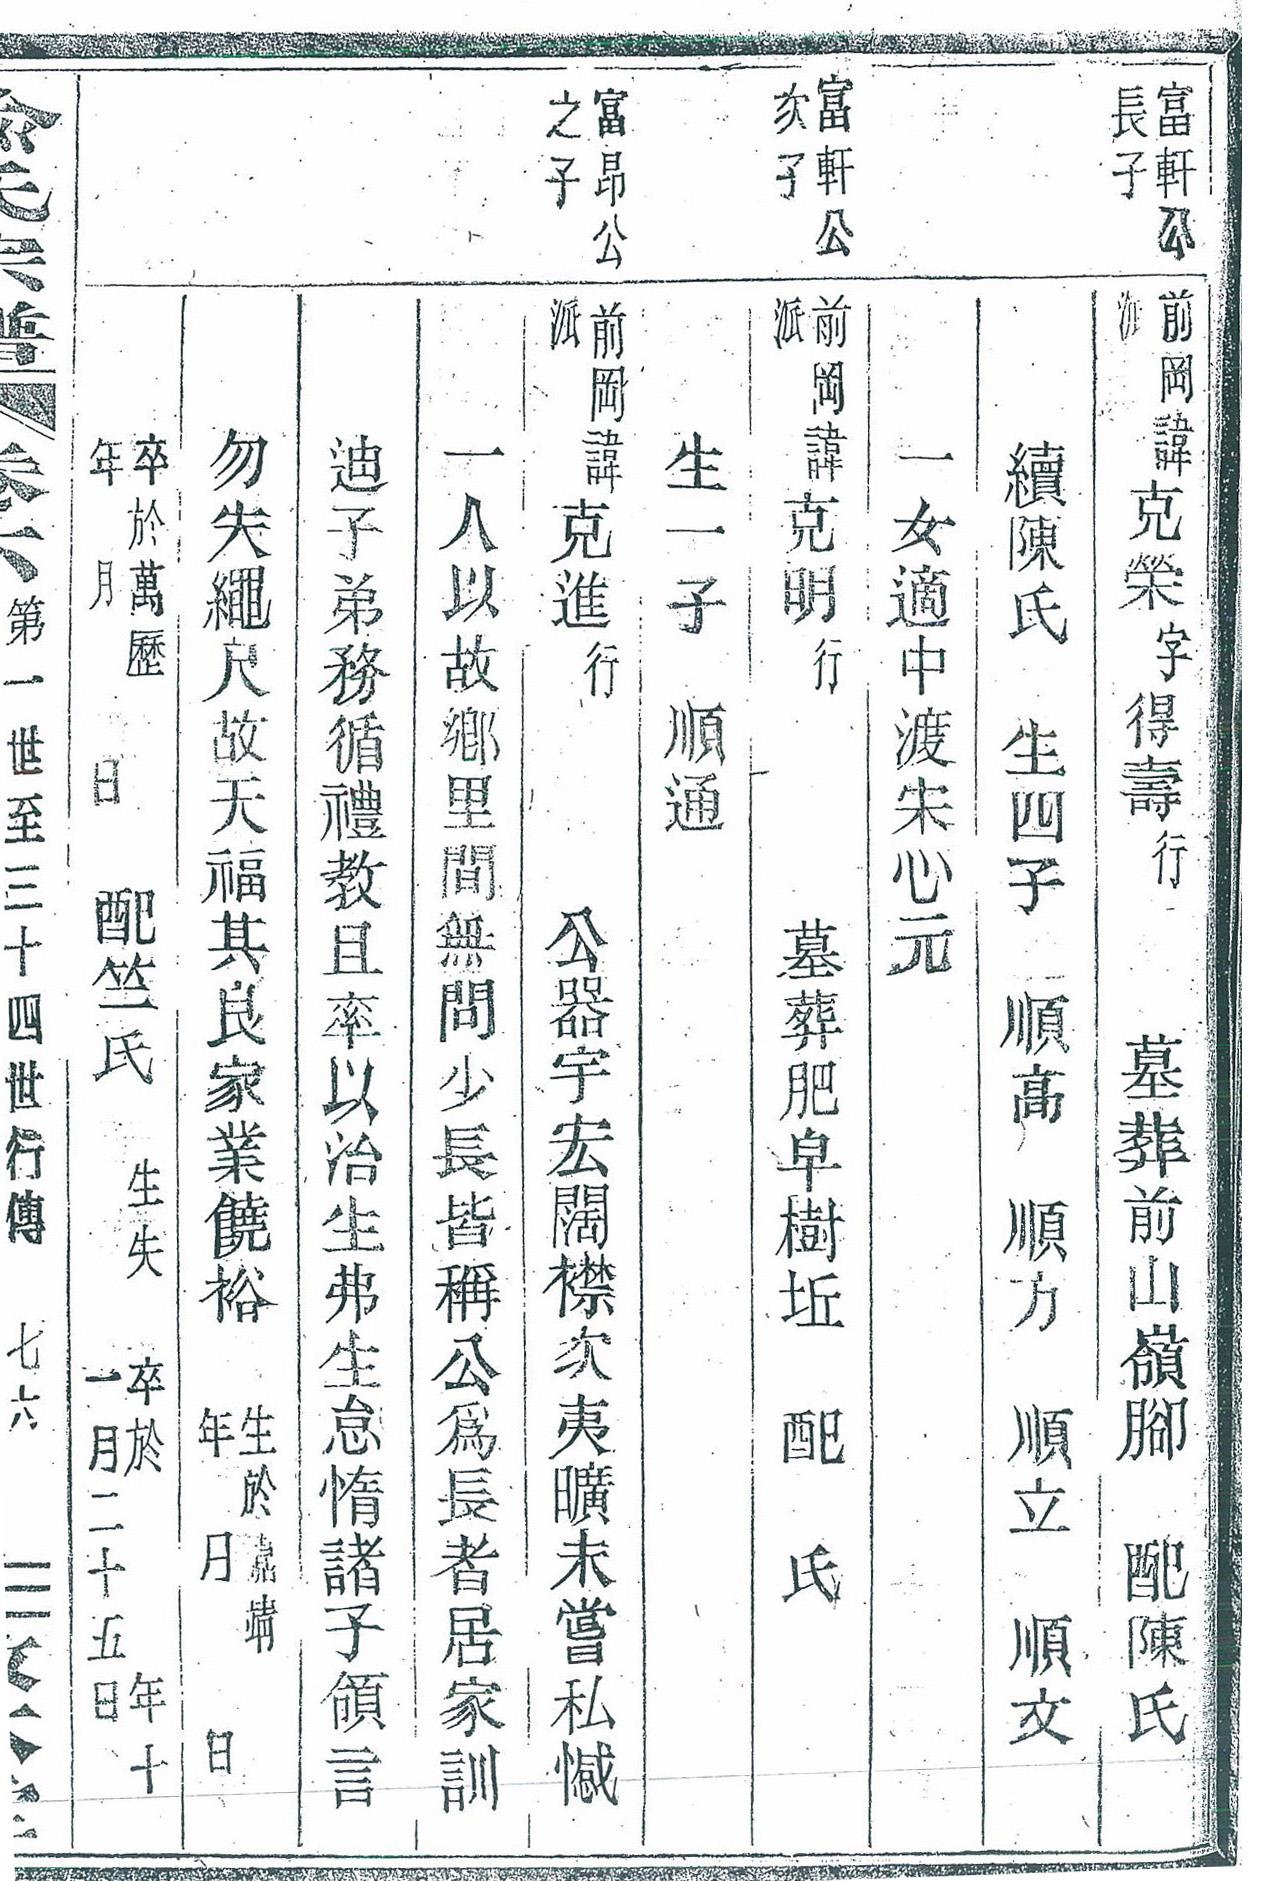 富軒公
長子
前岡
派
諱克榮字得壽行　墓葬前山嶺腳　配陳氏
續陳氏　生四子　順高　順力　順立　順文
一女適中渡朱心元
富軒公
次子
前岡
派
諱克明行　墓葬肥皁樹坵　配　氏
生一子　順通
富昂公
之子
前岡
派
諱克進行　公器宇宏闊襟次夷曠未嘗私憾
一人以故鄉里間無問少長皆稱公為長者居家訓
迪子弟務循禮教且率以治生弗生怠惰諸子領言
勿失繩尺故天福其良家業饒裕　生於嘉靖
年　月　日
卒於萬歷
年　月　日　配竺氏　生失　卒於　年十
一月二十五日
氏宗譜　卷六　第一世至三十四世行傳　七六